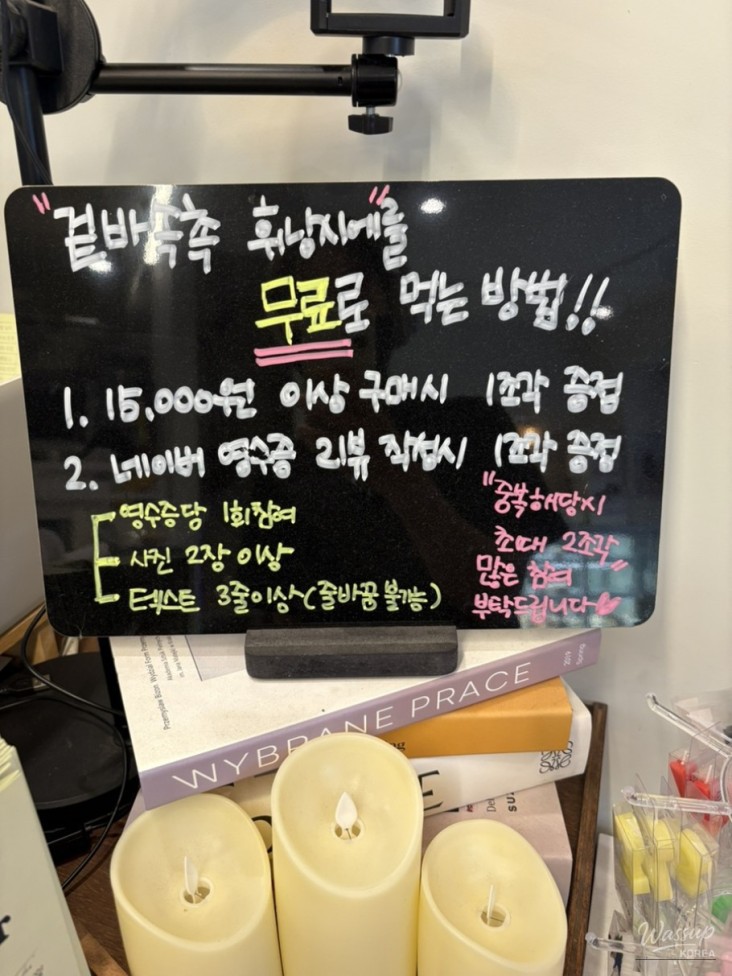 "겉바속촉 휘낭시에"를
무료로 먹는 방법!!
1. 15,000원 이상 구매시 1조각 증정
2. 네이버 영수증 리뷰 작성시 1조각 증정
영수증당 1회 참여
사진 2장 이상
텍스트 3줄이상(줄바꿈 불가능)
"중복해당시
최대 2조각"
많은 참여
부탁드립니다♡
WYBRANE PRACE
Wassup
KOREA